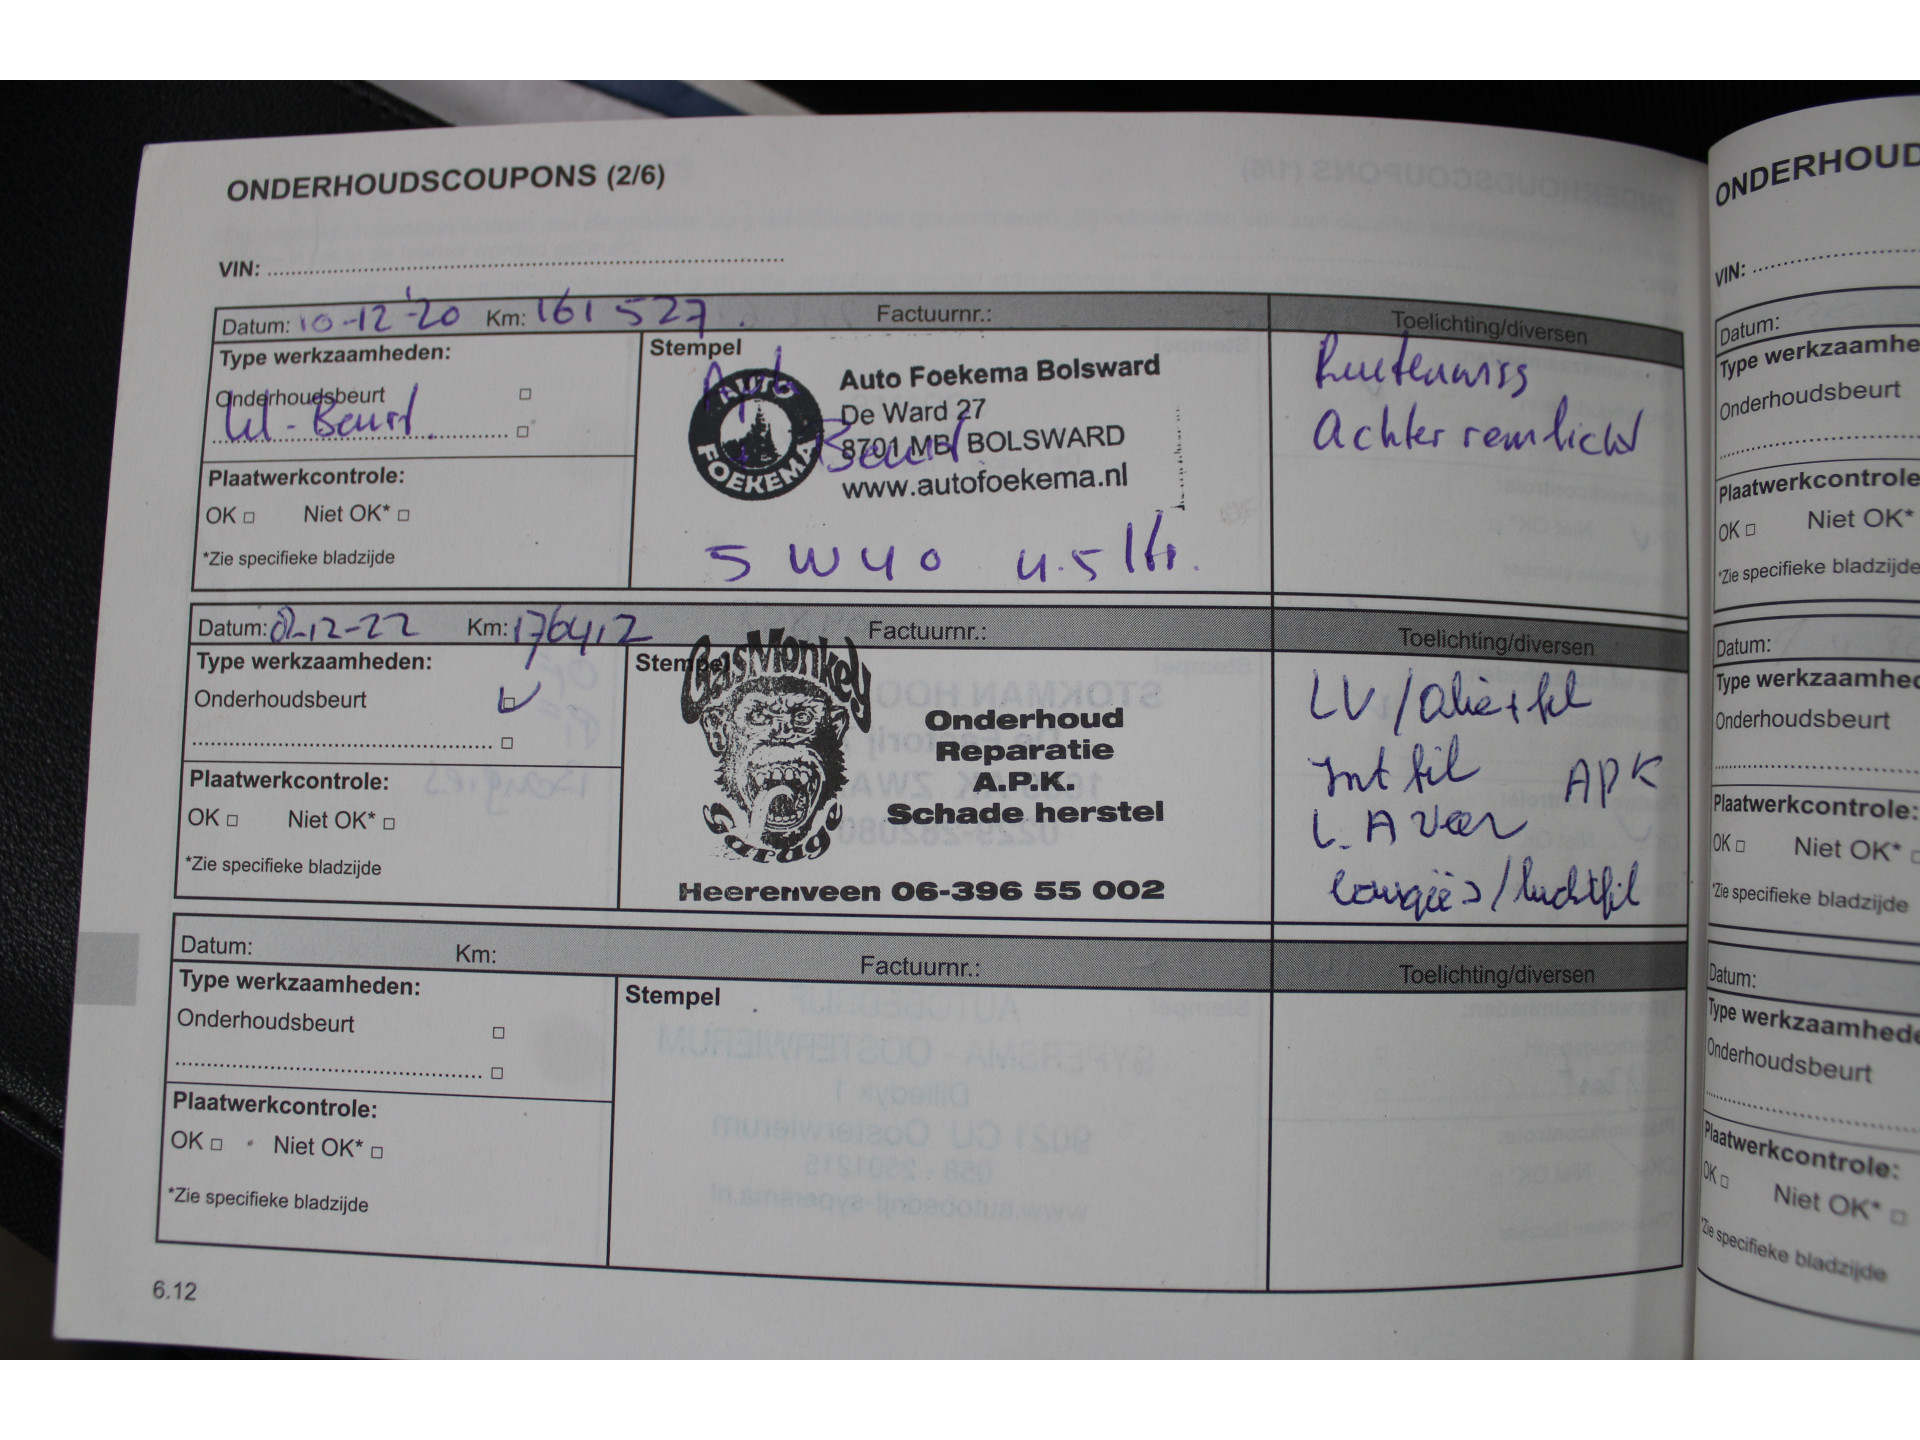 ONDERHOUDSCOUPONS (2/6)
VIN:
Datum: 10-12-'20 Km: 161527 Factuurnr.: Toelichting/diversen
Type werkzaamheden:
Onderhoudsbeurt
kl-Beurt
Plaatwerkcontrole:
OK Niet OK*
*Zie specifieke bladzijde
Stempel
Apk
Beurt
AUTO FOEKEMA
Auto Foekema Bolsward
De Ward 27
8701 MB BOLSWARD
www.autofoekema.nl
5W40 4.5 ltr.
Ruitenwiss
Achter remlicht
Datum: 02-12-22 Km: 176412 Factuurnr.: Toelichting/diversen
Type werkzaamheden:
Onderhoudsbeurt
Plaatwerkcontrole:
OK Niet OK*
*Zie specifieke bladzijde
Stempel
GasMonkey
Garag
Onderhoud
Reparatie
A.P.K.
Schade herstel
Heerenveen 06-396 55 002
LV/olie+fil
Int fil APK
L.A veer
bougiës/luchtfil
Datum: Km: Factuurnr.: Toelichting/diversen
Type werkzaamheden:
Onderhoudsbeurt
Plaatwerkcontrole:
OK Niet OK*
*Zie specifieke bladzijde
Stempel
6.12
ONDERHOUD
VIN:
Datum:
Type werkzaamhe
Onderhoudsbeurt
Plaatwerkcontrole
OK Niet OK*
*Zie specifieke bladzijde
Datum:
Type werkzaamhed
Onderhoudsbeurt
Plaatwerkcontrole:
OK Niet OK*
*Zie specifieke bladzijde
Datum:
Type werkzaamhede
Onderhoudsbeurt
Plaatwerkcontrole:
OK Niet OK*
*Zie specifieke bladzijde